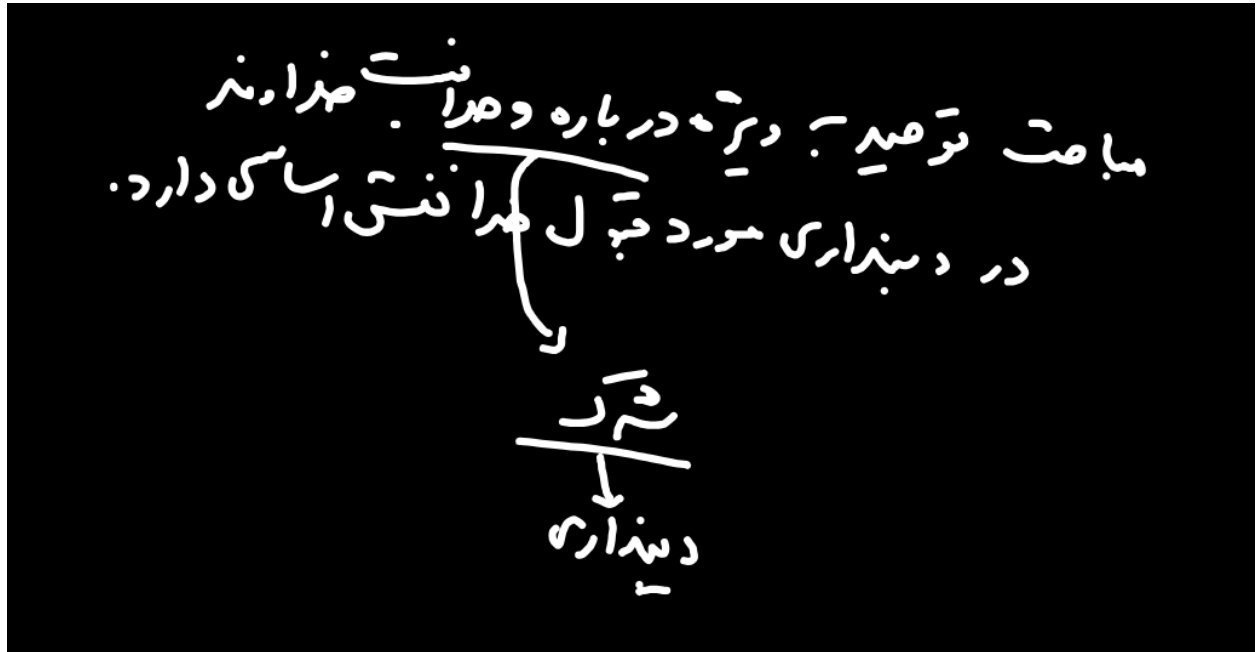 مباحث توحید به ویژه درباره وحدانیت خداوند
در دینداری مورد قبول خدا نقش اساسی دارد.
شرک
دینداری